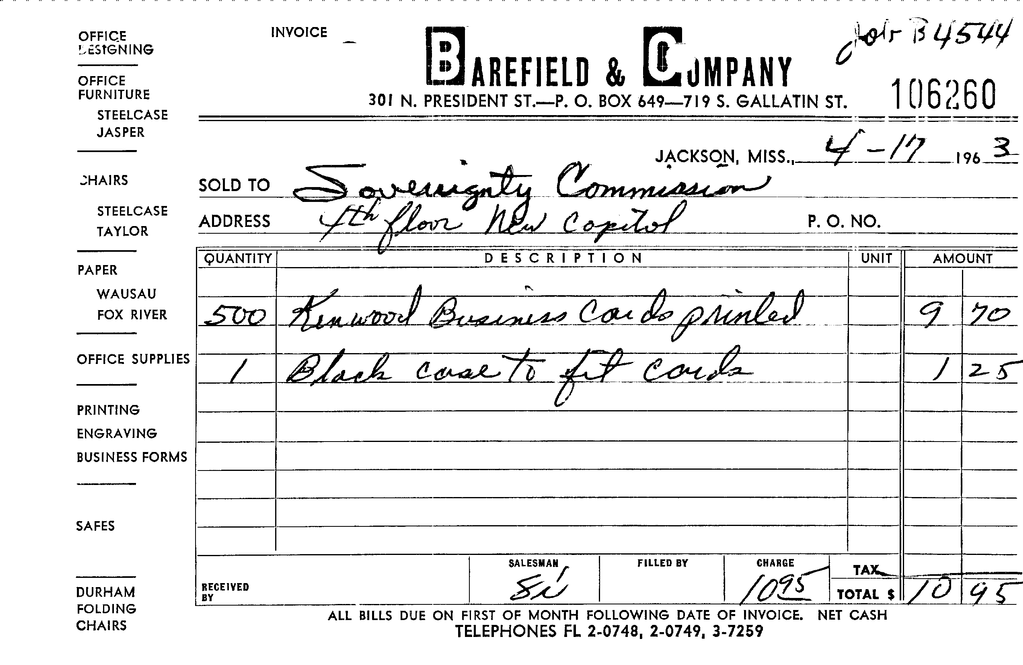 INVOICE
Job B4544
BAREFIELD & COMPANY
301 N. PRESIDENT ST.—P. O. BOX 649—719 S. GALLATIN ST.
106260
JACKSON, MISS., 4-17 1963
SOLD TO Sovereignty Commission
ADDRESS 4th floor New Capitol P. O. NO.
QUANTITY DESCRIPTION UNIT AMOUNT
500 Kenwood Business Cards printed 9 70
1 Black case to fit cards 1 25
RECEIVED BY
SALESMAN
FILLED BY
CHARGE 1095
TAX
TOTAL $ 10 95
ALL BILLS DUE ON FIRST OF MONTH FOLLOWING DATE OF INVOICE. NET CASH
TELEPHONES FL 2-0748, 2-0749, 3-7259
OFFICE
DESIGNING
OFFICE
FURNITURE
STEELCASE
JASPER
CHAIRS
STEELCASE
TAYLOR
PAPER
WAUSAU
FOX RIVER
OFFICE SUPPLIES
PRINTING
ENGRAVING
BUSINESS FORMS
SAFES
DURHAM
FOLDING
CHAIRS